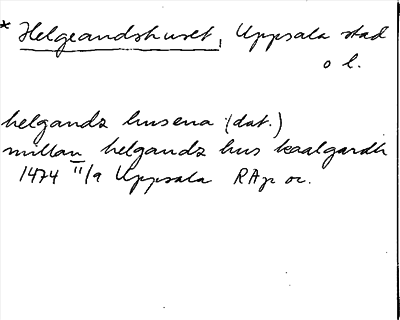 * Helgeandshuset, Uppsala stad
o l.
helgandz husena (dat.)
millan helgandz hus kaalgardh
1474 11/9 Uppsala RAp or.